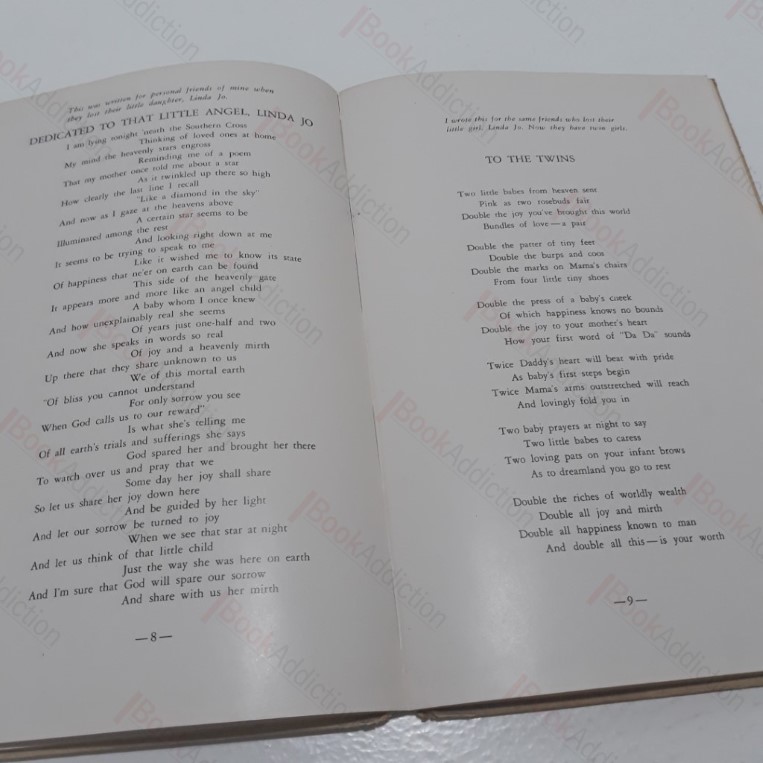 This was written for personal friends of mine when
they lost their little daughter, Linda Jo.
DEDICATED TO THAT LITTLE ANGEL, LINDA JO
I am lying tonight 'neath the Southern Cross
Thinking of loved ones at home
My mind the heavenly stars engross
Reminding me of a poem
That my mother once told me about a star
As it twinkled up there so high
How clearly the last line I recall
"Like a diamond in the sky"
And now as I gaze at the heavens above
A certain star seems to be
Illuminated among the rest
And looking right down at me
It seems to be trying to speak to me
Like it wished me to know its state
Of happiness that ne'er on earth can be found
This side of the heavenly gate
It appears more and more like an angel child
A baby whom I once knew
And how unexplainably real she seems
Of years just one-half and two
And now she speaks in words so real
Of joy and a heavenly mirth
Up there that they share unknown to us
We of this mortal earth
"Of bliss you cannot understand
For only sorrow you see
When God calls us to our reward"
Is what she's telling me
Of all earth's trials and sufferings she says
God spared her and brought her there
To watch over us and pray that we
Some day her joy shall share
So let us share her joy down here
And be guided by her light
And let our sorrow be turned to joy
When we see that star at night
And let us think of that little child
Just the way she was here on earth
And I'm sure that God will spare our sorrow
And share with us her mirth
—8—
I wrote this for the same friends who lost their
little girl, Linda Jo. Now they have twin girls.
TO THE TWINS
Two little babes from heaven sent
Pink as two rosebuds fair
Double the joy you've brought this world
Bundles of love—a pair
Double the patter of tiny feet
Double the burps and coos
Double the marks on Mama's chairs
From four little tiny shoes
Double the press of a baby's cheek
Of which happiness knows no bounds
Double the joy to your mother's heart
How your first word of "Da Da" sounds
Twice Daddy's heart will beat with pride
As baby's first steps begin
Twice Mama's arms outstretched will reach
And lovingly fold you in
Two baby prayers at night to say
Two little babes to caress
Two loving pats on your infant brows
As to dreamland you go to rest
Double the riches of worldly wealth
Double all joy and mirth
Double all happiness known to man
And double all this—is your worth
—9—
BookAddiction